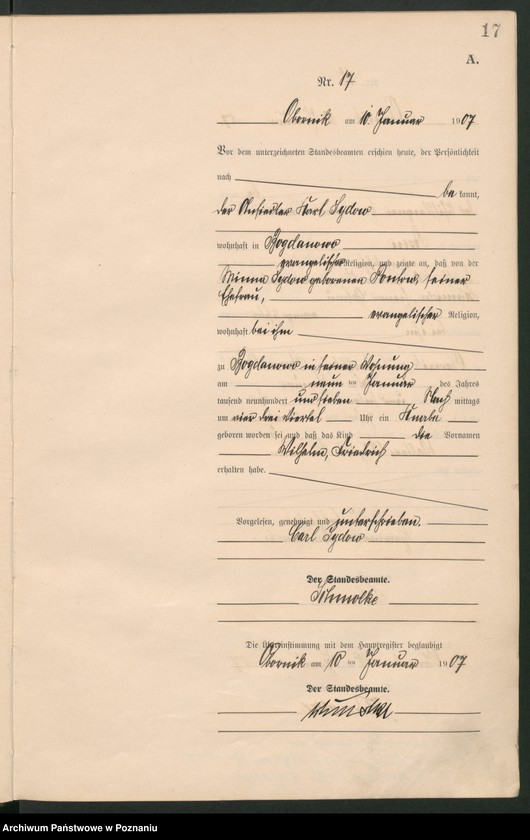 17
A.
Nr. 17
Obornik am 10. Januar 1907
Vor dem unterzeichneten Standesbeamten erschien heute, der Persönlichkeit
nach
be kannt,
der Ansiedler Karl Sydow
wohnhaft in Bogdanowo
evangelischer Religion, und zeigte an, daß von der
Minna Sydow geborenen Pontow, seiner
Ehefrau,
evangelischer Religion,
wohnhaft bei ihm
zu Bogdanowo in seiner Wohnung
am neun ten Januar des Jahres
tausend neunhundert und sieben Nach mittags
um vier drei viertel Uhr ein Knabe
geboren worden sei und daß das Kind die Vornamen
Wilhelm, Friedrich
erhalten habe.
Vorgelesen, genehmigt und unterschrieben.
Carl Sydow
Der Standesbeamte.
Schmolke
Die Übereinstimmung mit dem Hauptregister beglaubigt
Obornik am 10 ten Januar 1907
Der Standesbeamte.
Archiwum Państwowe w Poznaniu